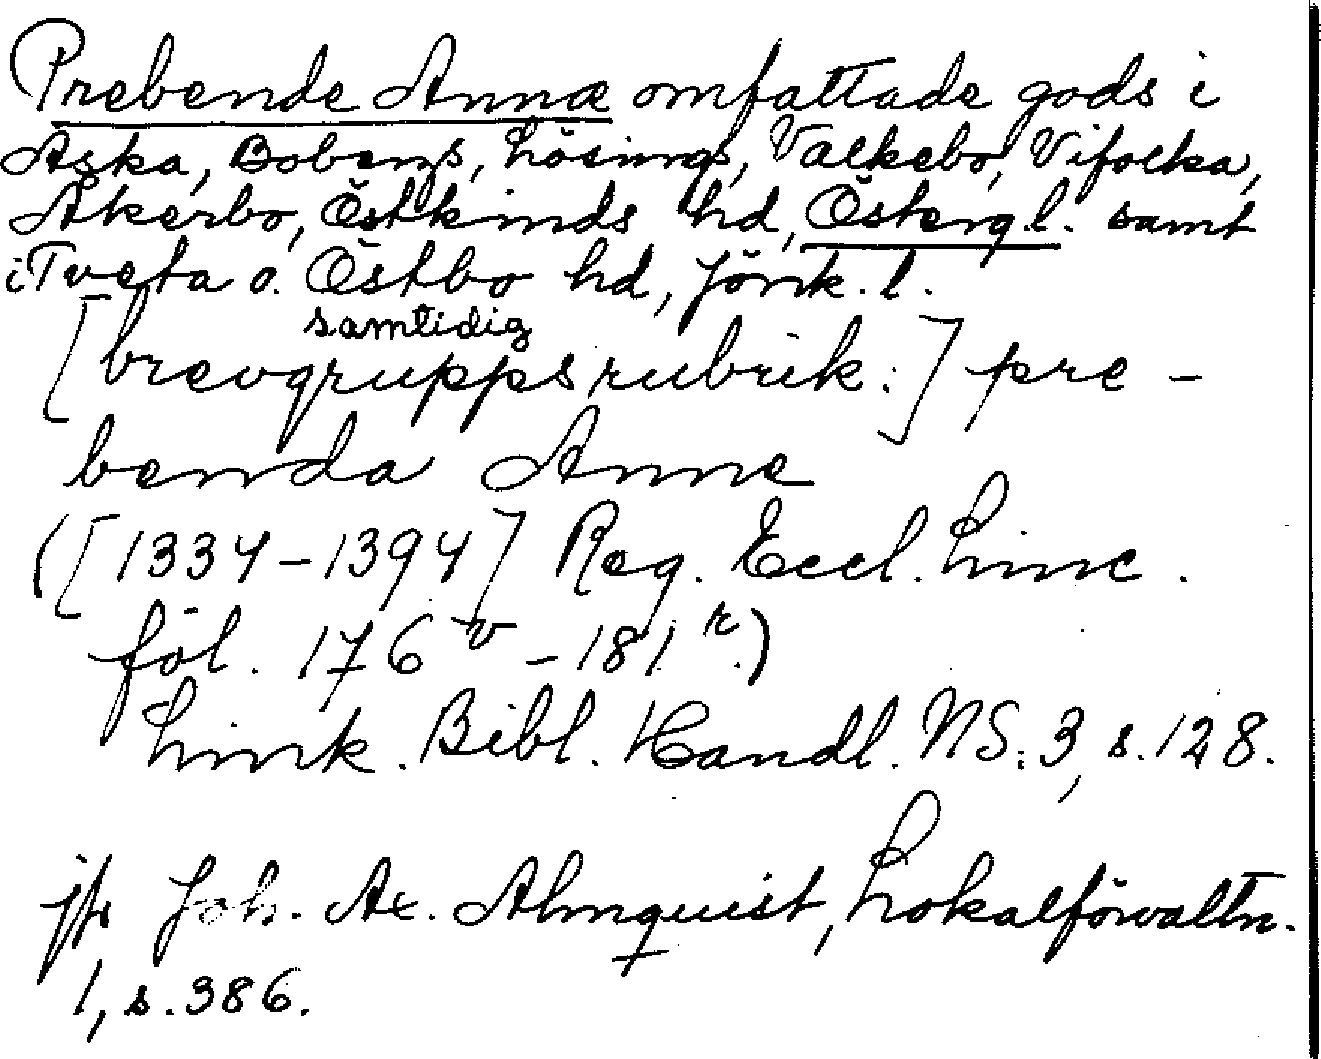 Prebende Annæ omfattade gods i
Aska, Bobergs, Lösings, Valkebo, Vifolka,
Åkerbo, Östkinds hd, Österg. l. samt
i Tveta o. Östbo hd, Jönk. l.
samtidig
[brevgruppsrubrik:] pre-
benda Anne
([1334-1394] Reg. Eccl. Linc.
fol. 176v - 181r.)
Link. Bibl. Handl. NS: 3, s. 128.
jfr Joh. Ax. Almquist, Lokalförvaltn.
1, s. 386.